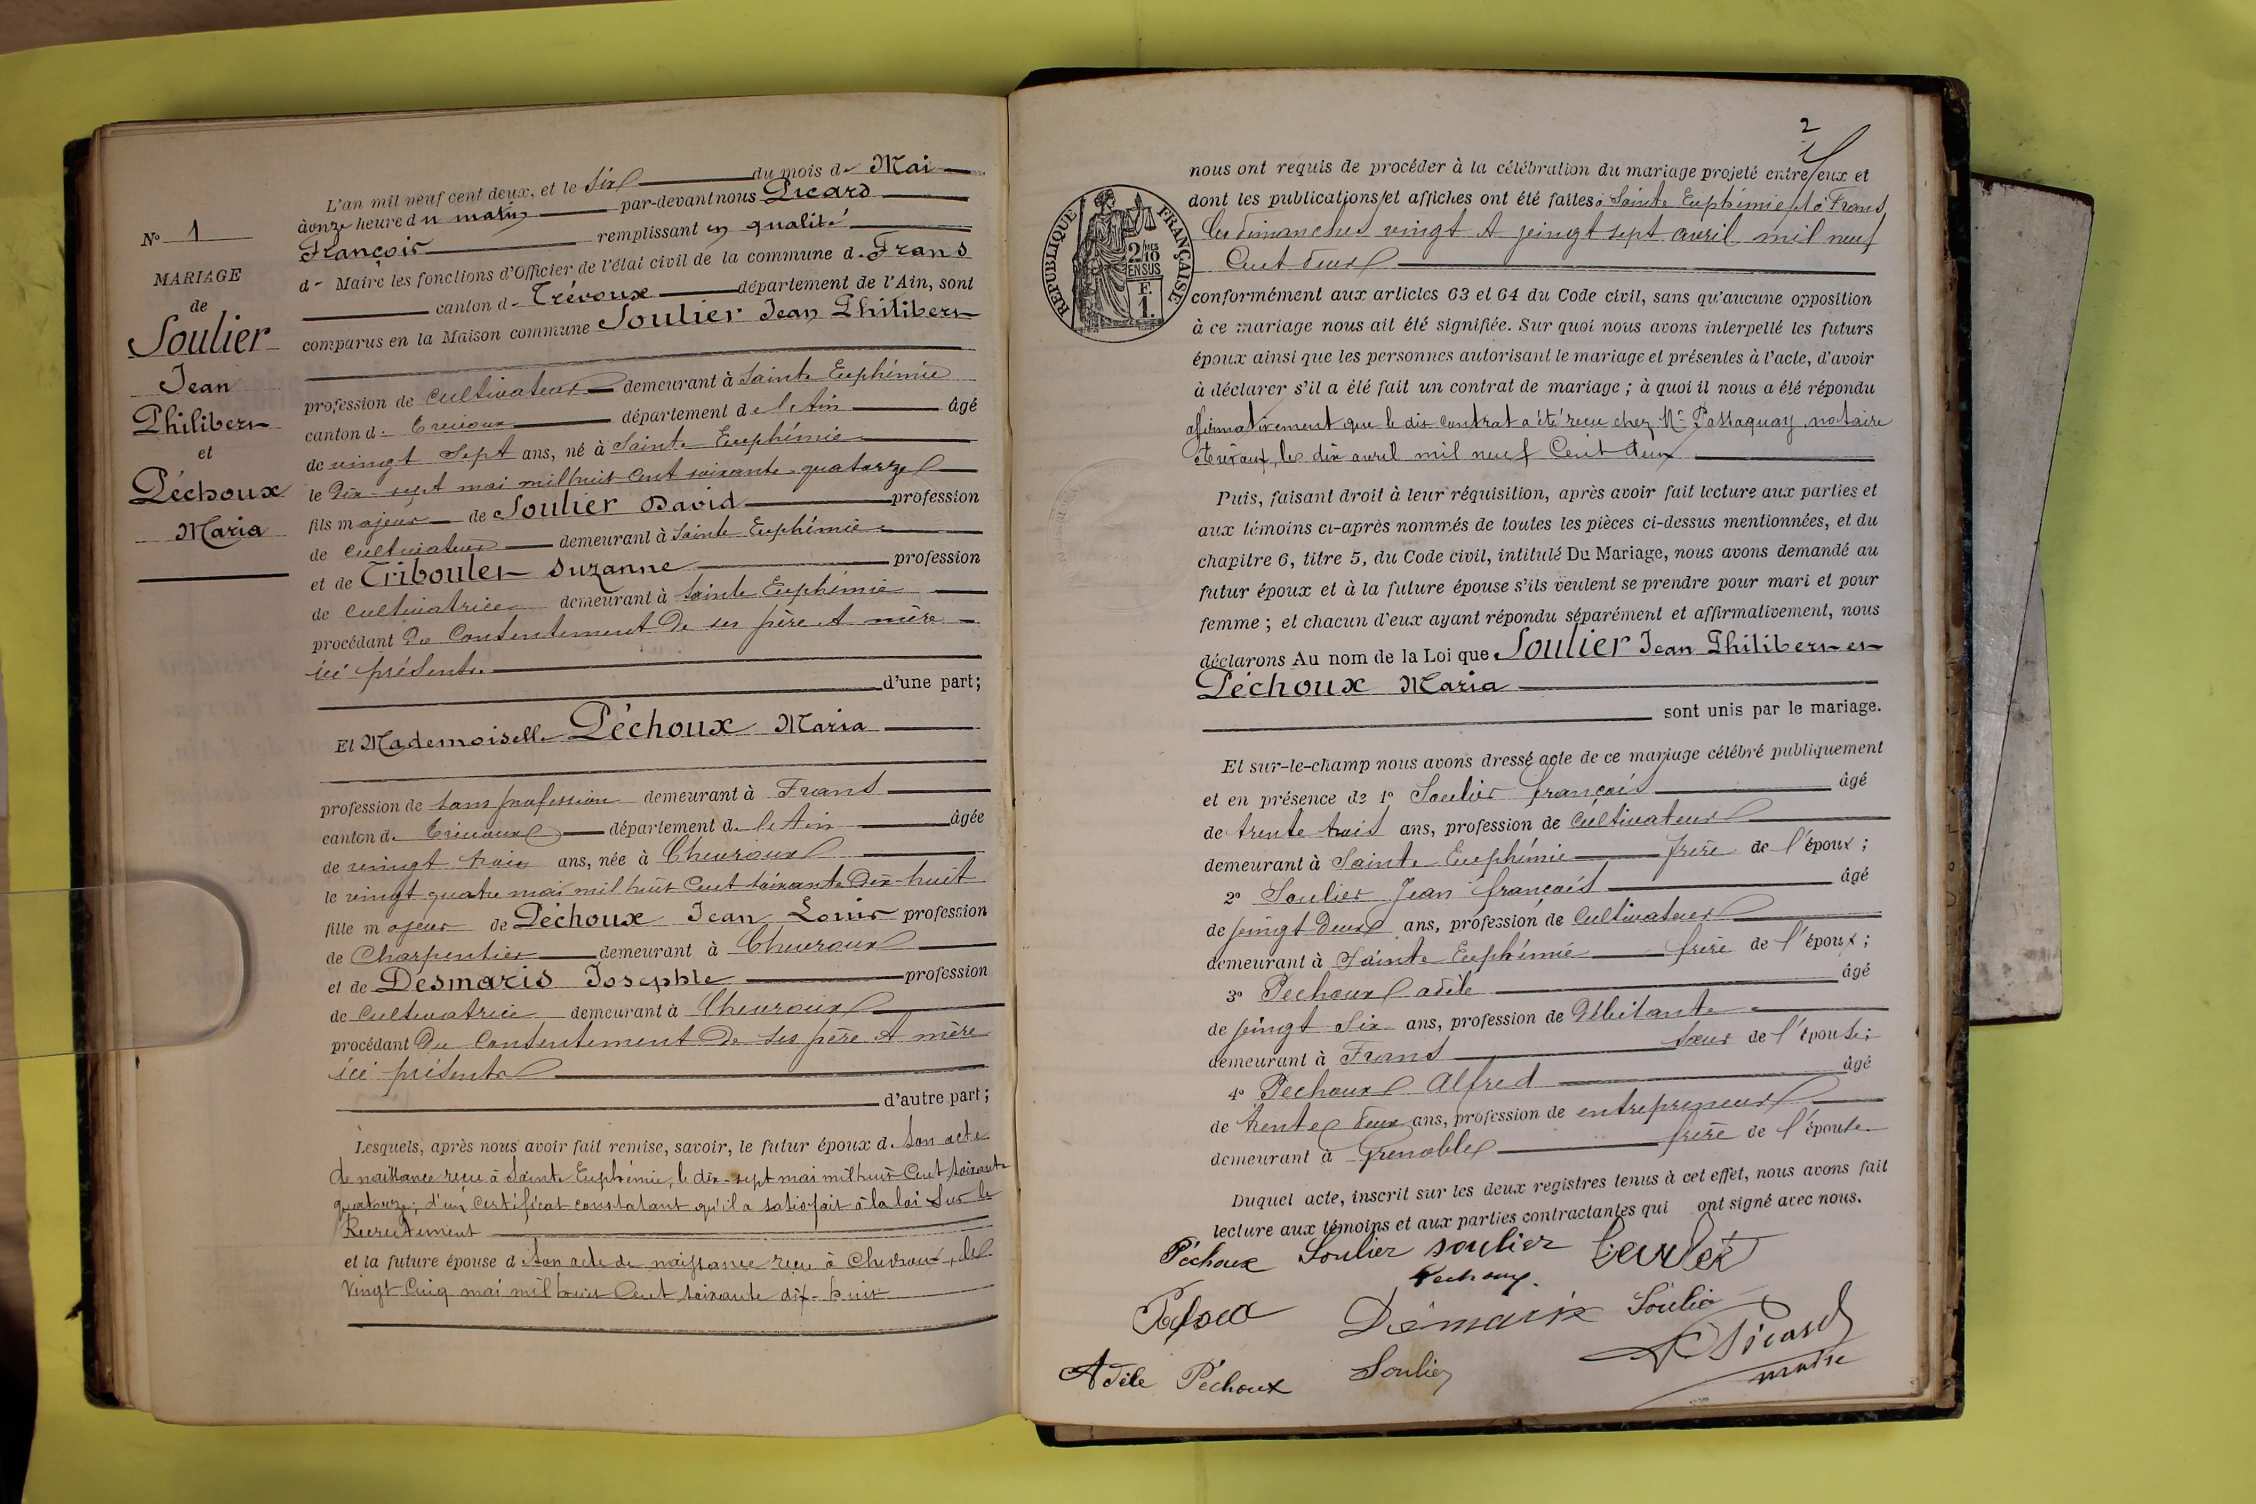 N° 1
MARIAGE
de
Soulier
Jean
Philibert
et
Péchoux
Maria
L'an mil neuf cent deux, et le six du mois de Mai
à onze heure du matin par-devant nous Picard
François remplissant en qualité
de Maire les fonctions d'Officier de l'état civil de la commune de Frans
canton de Trévoux département de l'Ain, sont
comparus en la Maison commune Soulier Jean Philibert
profession de cultivateur demeurant à Sainte Euphémie
canton de Trévoux département de l'Ain âgé
de vingt sept ans, né à Sainte Euphémie
le dix-sept mai mil huit cent soixante-quatorze
fils majeur de Soulier David profession
de cultivateur demeurant à Sainte Euphémie
et de Triboulet Suzanne profession
de cultivatrice demeurant à Sainte Euphémie
procédant du consentement de ses père et mère
ici présents
d'une part;
Et Mademoiselle Péchoux Maria
profession de sans profession demeurant à Frans
canton de Trévoux département de l'Ain âgée
de vingt trois ans, née à Chevroux
le vingt quatre mai mil huit cent soixante dix-huit
fille majeur de Péchoux Jean Louis profession
de Charpentier demeurant à Chevroux
et de Desmaris Josephte profession
de cultivatrice demeurant à Chevroux
procédant du consentement de ses père et mère
ici présents
d'autre part;
Lesquels, après nous avoir fait remise, savoir, le futur époux de son acte
de naissance reçu à Sainte Euphémie, le dix-sept mai mil huit cent soixante
quatorze; d'un certificat constatant qu'il a satisfait à la loi sur le
Recrutement
et la future épouse d son acte de naissance reçu à Chevroux, le
vingt cinq mai mil huit cent soixante dix-huit
2
nous ont requis de procéder à la célébration du mariage projeté entre eux et
dont les publications et affiches ont été faites à Sainte Euphémie et à Frans
les dimanches vingt et vingt sept avril mil neuf
cent deux
RÉPUBLIQUE FRANÇAISE
2/10 EN SUS
F.
1.
conformément aux articles 63 et 64 du Code civil, sans qu'aucune opposition
à ce mariage nous ait été signifiée. Sur quoi nous avons interpellé les futurs
époux ainsi que les personnes autorisant le mariage et présentes à l'acte, d'avoir
à déclarer s'il a été fait un contrat de mariage; à quoi il nous a été répondu
affirmativement que le dit contrat a été reçu chez Me Passaquay notaire
à Trévoux, le dix avril mil neuf cent deux
Puis, faisant droit à leur réquisition, après avoir fait lecture aux parties et
aux témoins ci-après nommés de toutes les pièces ci-dessus mentionnées, et du
chapitre 6, titre 5, du Code civil, intitulé Du Mariage, nous avons demandé au
futur époux et à la future épouse s'ils veulent se prendre pour mari et pour
femme; et chacun d'eux ayant répondu séparément et affirmativement, nous
déclarons Au nom de la Loi que Soulier Jean Philibert et
Péchoux Maria
sont unis par le mariage.
Et sur-le-champ nous avons dressé acte de ce mariage célébré publiquement
et en présence de 1° Soulier français âgé
de trente trois ans, profession de cultivateur
demeurant à Sainte Euphémie frère de l'époux;
2° Soulier Jean français âgé
de vingt deux ans, profession de cultivateur
demeurant à Sainte Euphémie frère de l'époux;
3° Pechoux adèle âgé
de vingt six ans, profession de débitante
demeurant à Frans sœur de l'épouse;
4° Pechoux Alfred âgé
de trente deux ans, profession de entrepreneur
demeurant à Grenoble frère de l'épouse
Duquel acte, inscrit sur les deux registres tenus à cet effet, nous avons fait
lecture aux témoins et aux parties contractantes qui ont signé avec nous.
Péchoux Soulier soulier
Pechoux
Démaris Soulier
F Picard
maire
Adèle Péchoux Soulier